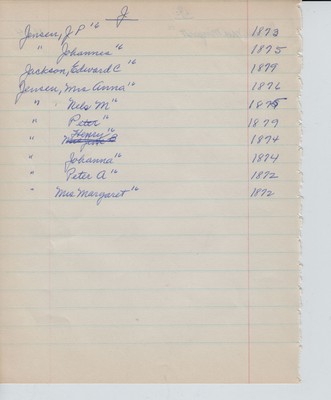 J
Jensen, J P "16 1873
" Johannes "16 1875
Jackson, Edward C "16 1879
Jensen, Mrs Anna "16 1876
" Nels M "16 1875
" Peter "16 1879
" Henry "16 1874
" Johanna "16 1874
" Peter A "16 1872
" Mrs Margaret "16 1872